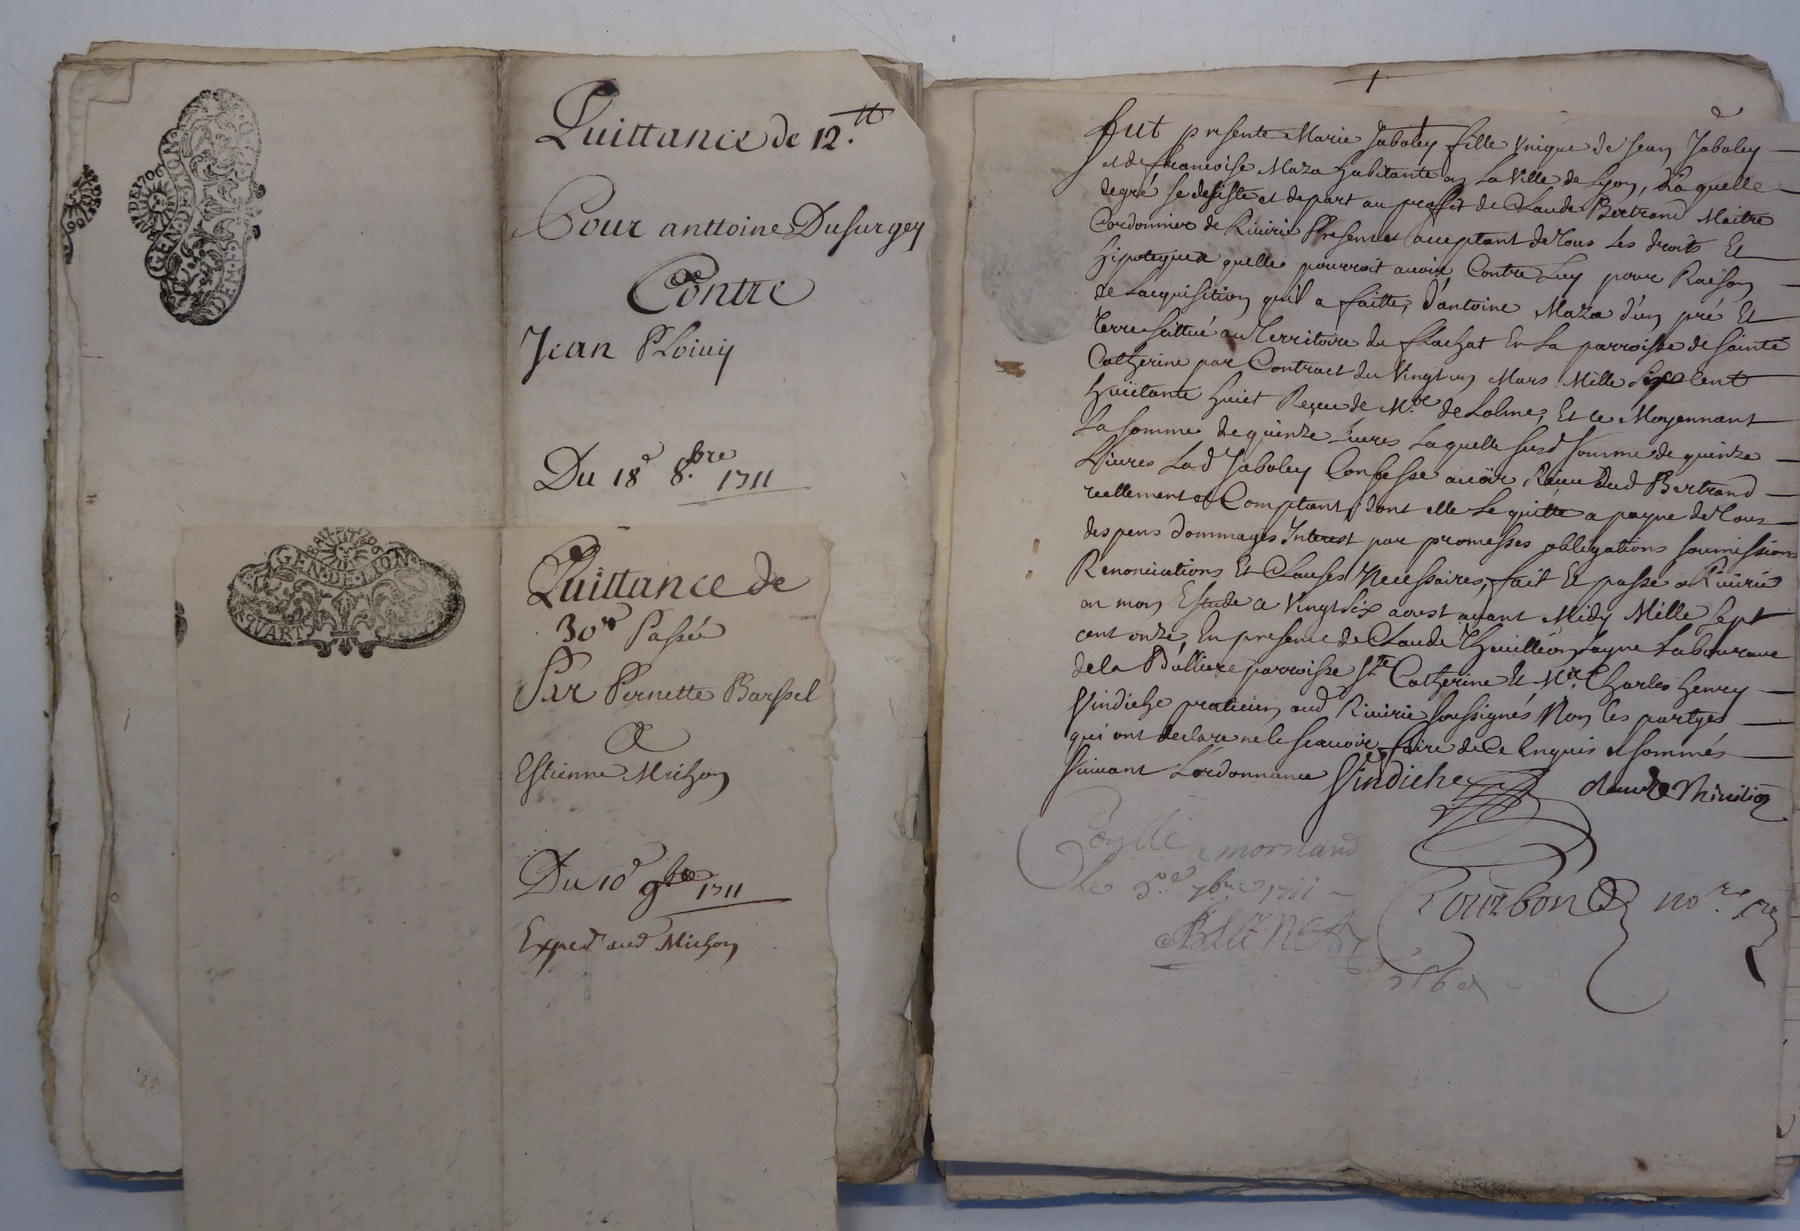 Quittance de 12.tt
Pour anttoine Dusurgey
Contre
Jean
Du 18e 8.bre 1711
GEN·DE·LION
Quittance de
30tt Passée
Par Pernette Barssel
A
Estienne Michon
Du 10e 9bre 1711
Exped aud Michon
fut presente Marie Jaboley fille Unique de Jean Jaboley
et de francoise Maza habitante en La Ville de Lyon, Laquelle
degré se desiste et depart au proffit de Claude Bertrand Maitre
Cordonnier de Riuirie Present et acceptant de Tous Les droits Et
hipoteques quelle pourroit auoir Contre Luy pour Raison
de Lacquisition quil a faitte, d'antoine Maza d'un pré Et
Terre scittué au Territoire du flachat En La parroisse de sainte
Catherine par Contract du Vingt un Mars Mille six Cent
huictante huict Receu de M.re deLolme, Et ce Moyennant
La somme de quinze Liures Laquelle susd somme de quinze
Liures Lad Jaboley Confesse auoir Receu Dud Bertrand
reellement et Comptant, dont elle Le quitte a payne de Tous
despens dommages Interest par promesses obligations soumissions
Renonciations Et Clauses Necessaires, fait Et passé a Riuirie
en mon Estude a Vingt six aoust auant Midy Mille sept
cent onze En presence de Claude Thuillion Layne Laboureur
de la Bulliere parroisse Ste Catherine Et Mr. Charles henry
Vindiche praticien aud Riuirie soussignés Non les partyes
qui ont declare ne le scauoir faire de Ce Enquis et sommés
suiuant L'ordonnance Vindiche Claude Thivilion
Conllé a mornand
Le 3.e 7bre 1711
Bourbon no.re